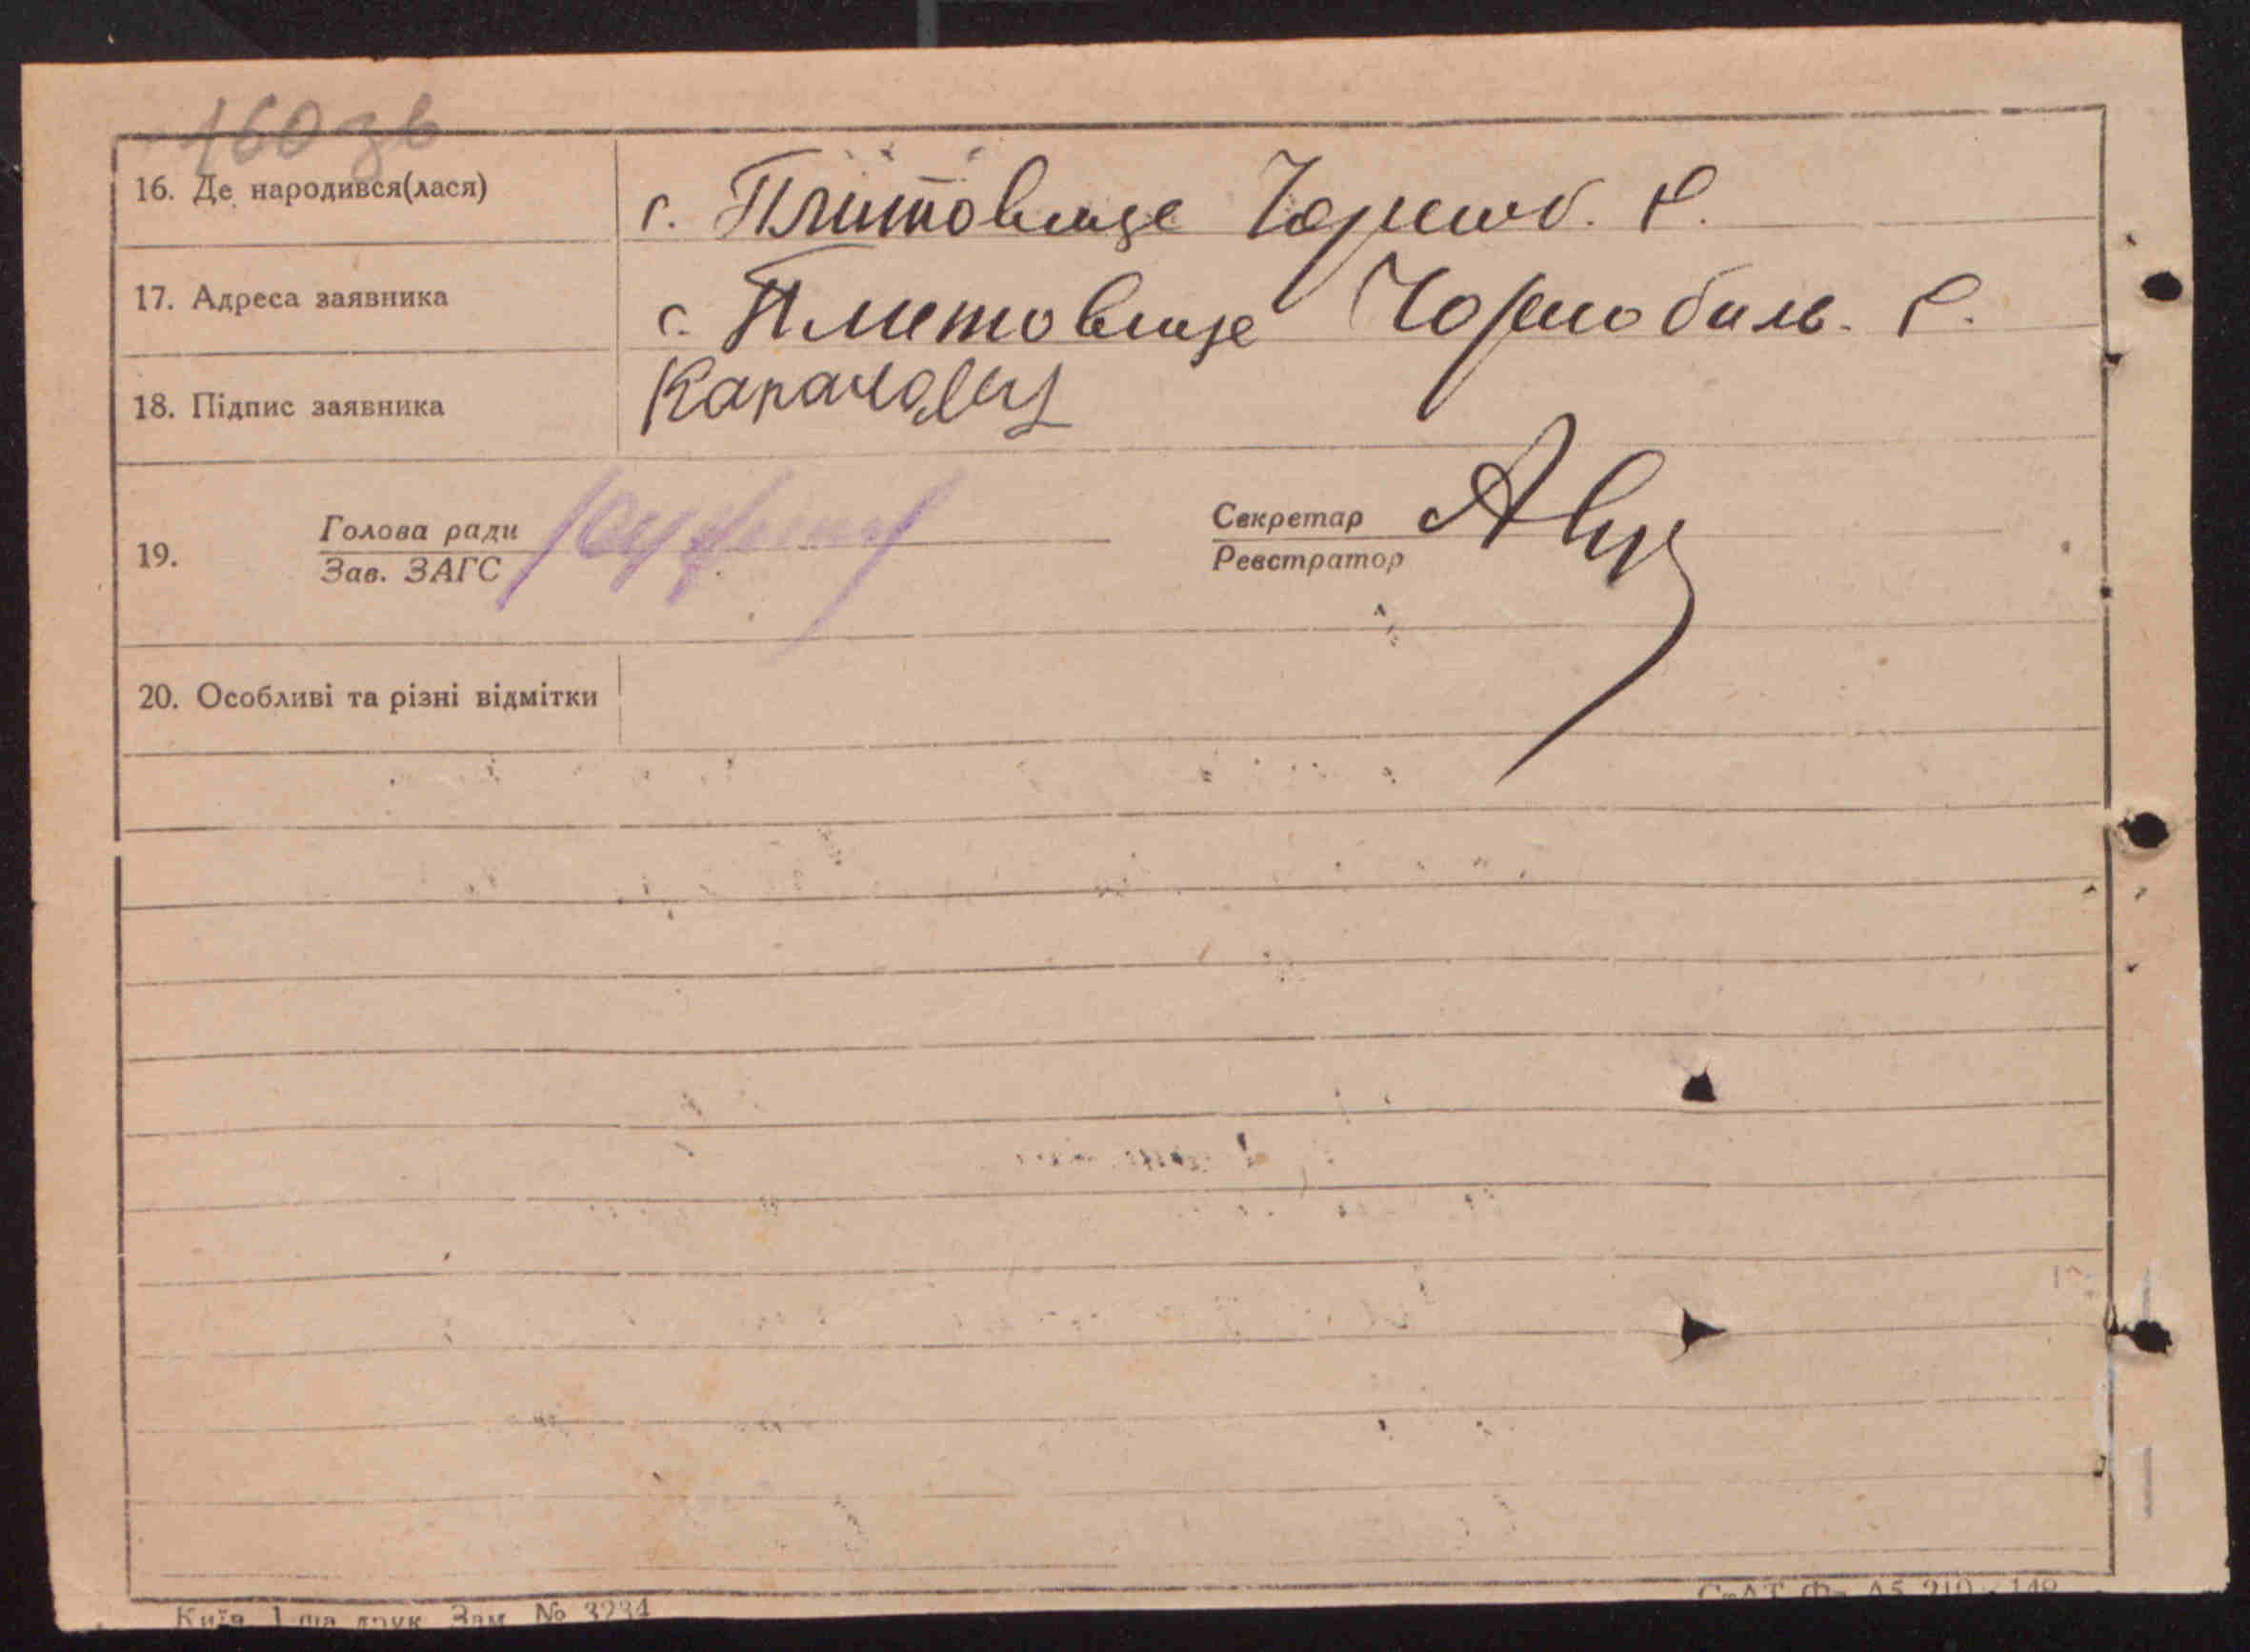 160 зв
16. Де народився(лася) с. Плитовище Чорноб. Р.
17. Адреса заявника с. Плитовище Чорнобиль. Р.
18. Підпис заявника
19. Голова ради Секретар
Зав. ЗАГС Реєстратор
20. Особливі та різні відмітки
Київ 1-ша друк. Зам. № 3234